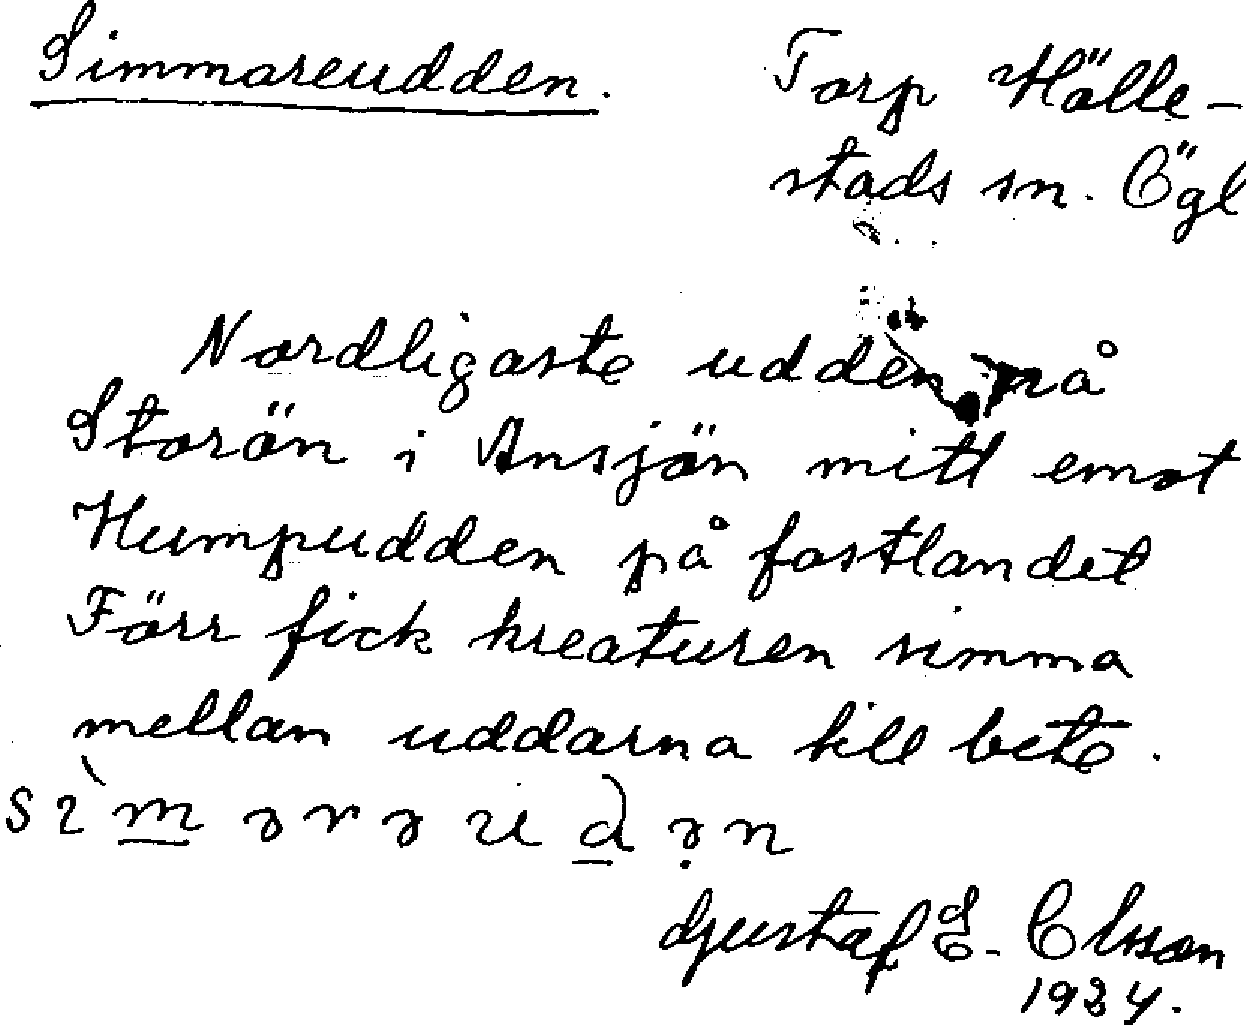 Simmareudden. Torp Hälle-
stads sn. Ögl
Nordligaste udden på
Storön i Ansjön mitt emot
Humpudden på fastlandet
Förr fick kreaturen simma
mellan uddarna till bete.
Gustaf E. Olsson
1934.